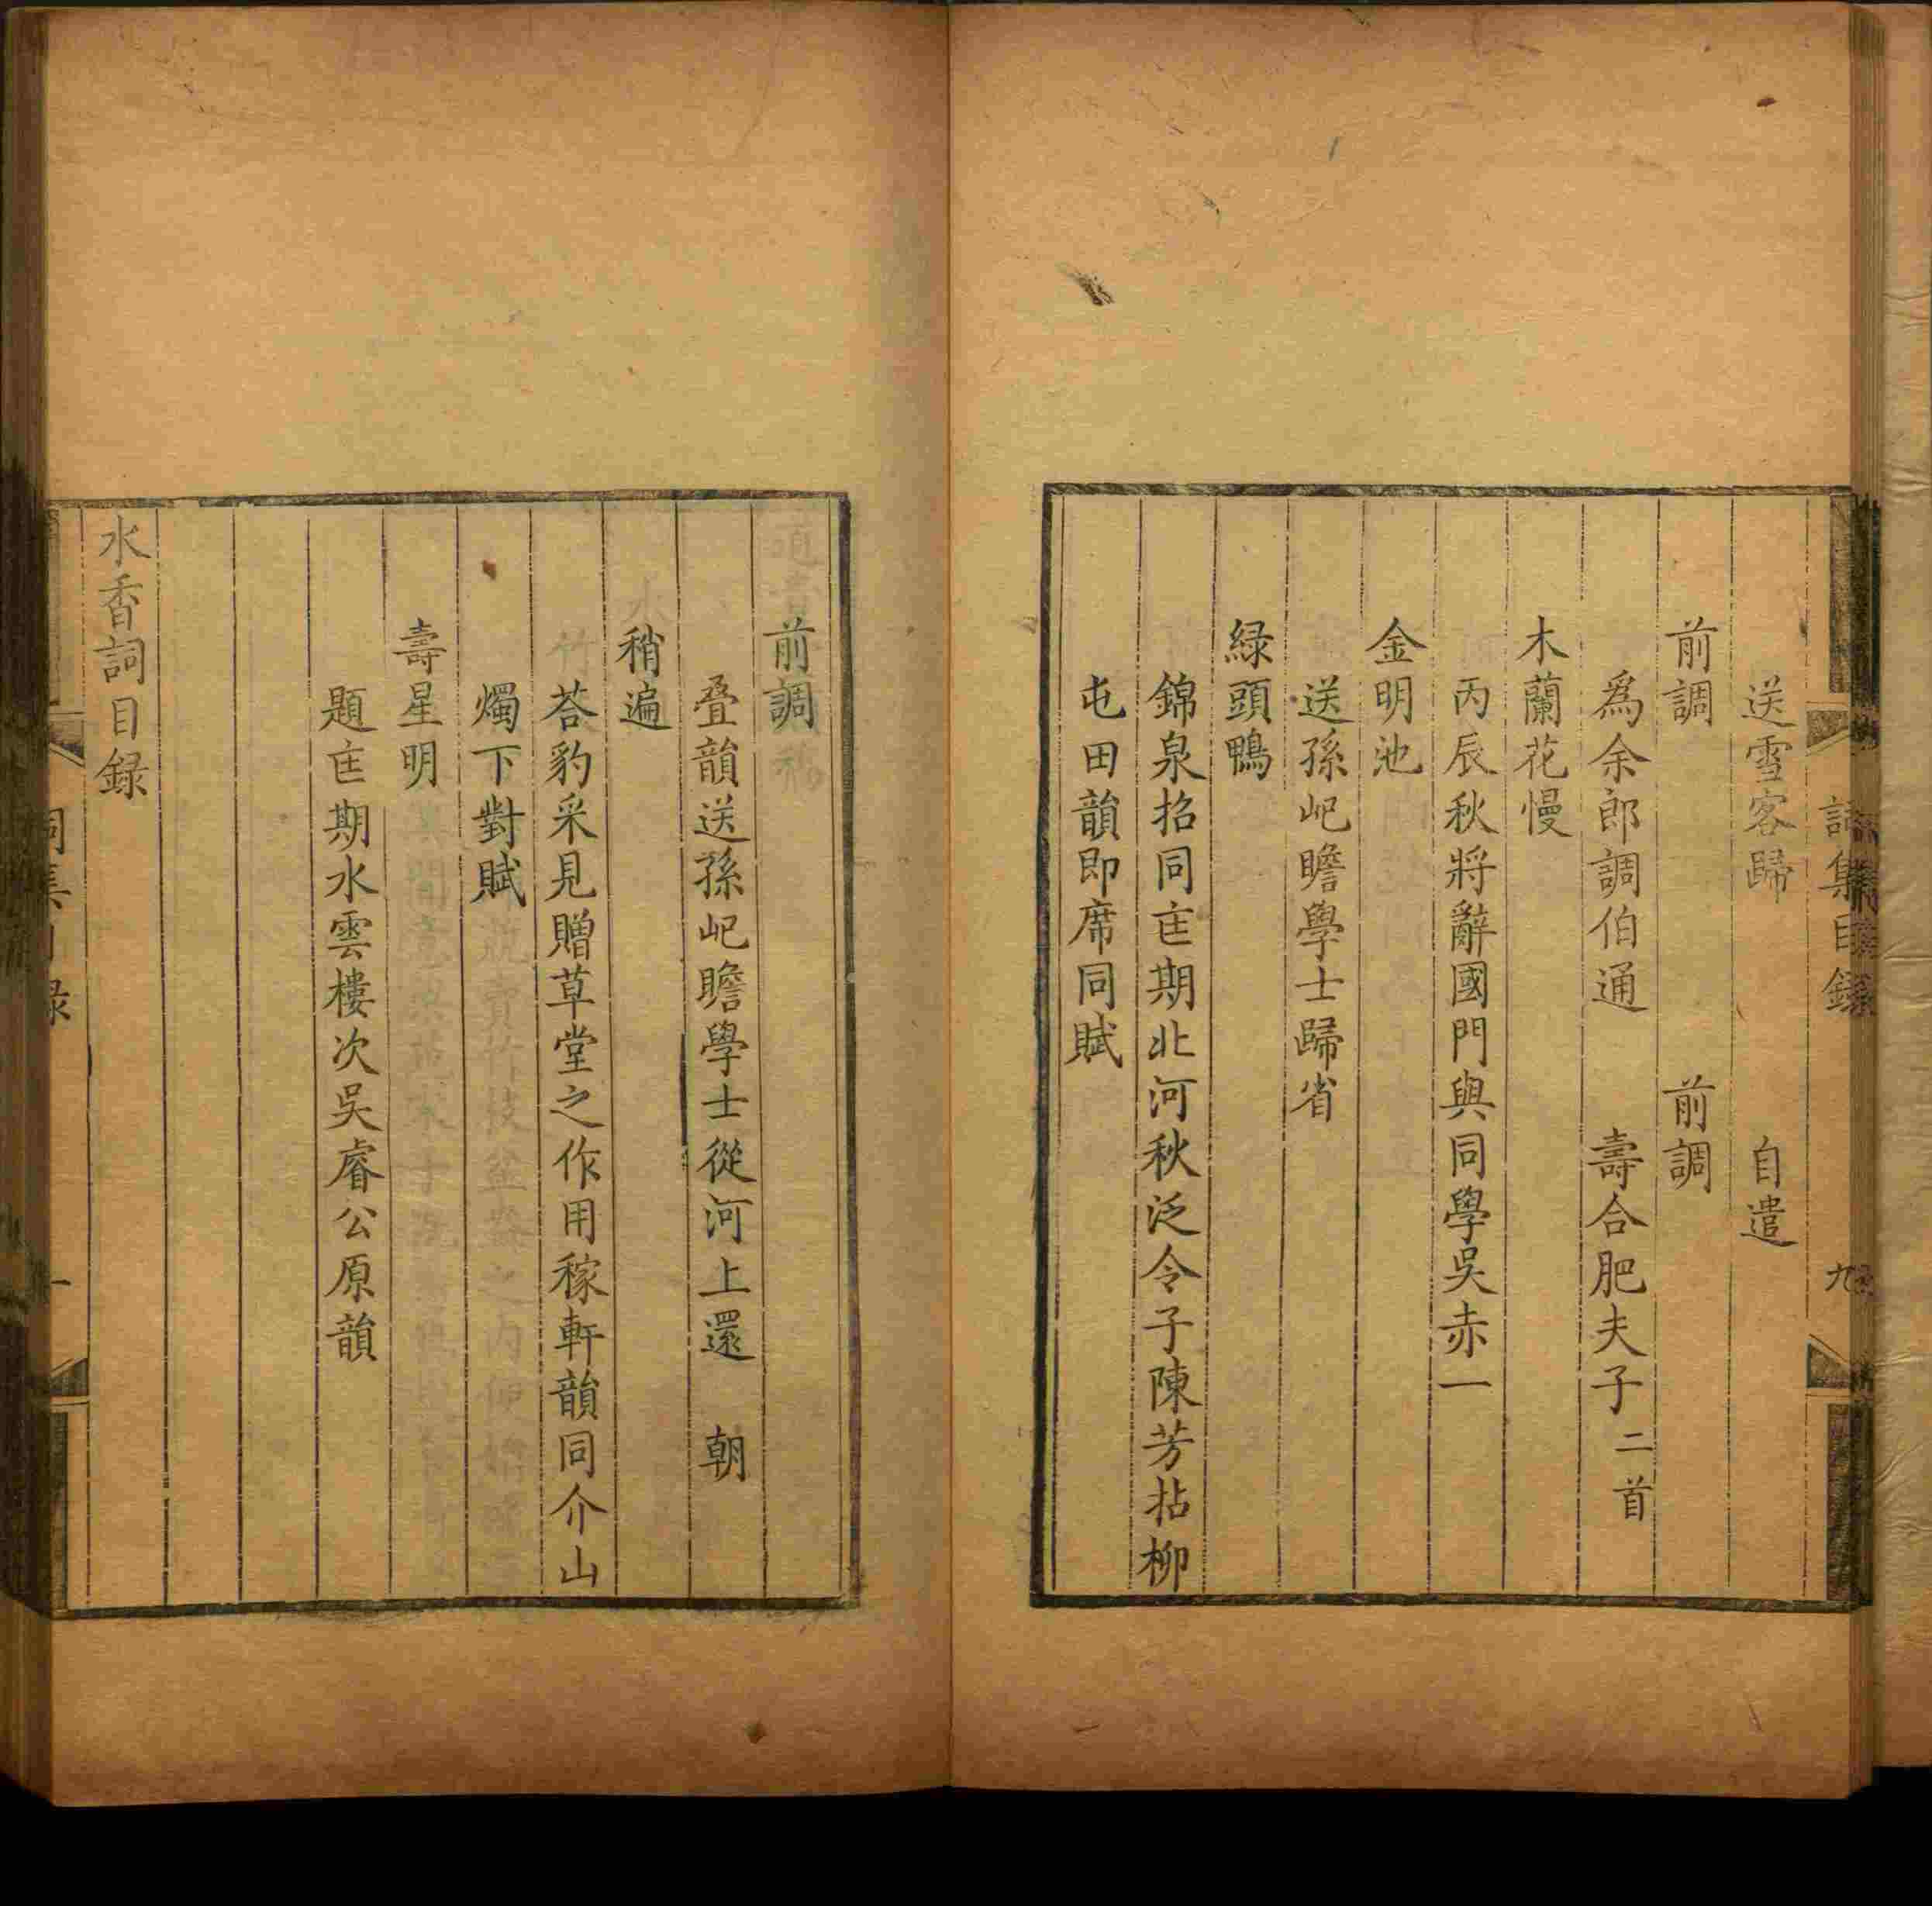 詞集目錄
九
送雪客歸　自遣
前調　前調
爲余郎調伯通　壽合肥夫子二首
木蘭花慢
丙辰秋將辭國門與同學吳赤一
金明池
送孫屺瞻學士歸省
緑頭鴨
錦泉招同疌期北河秋泛令子陳芳拈柳
屯田韻即席同賦
前調
疊韻送孫屺瞻學士從河上還　朝
稍遍
荅豹采見贈草堂之作用稼軒韻同介山
燭下對賦
壽星明
題疌期水雲樓次吳睿公原韻
水香詞目録